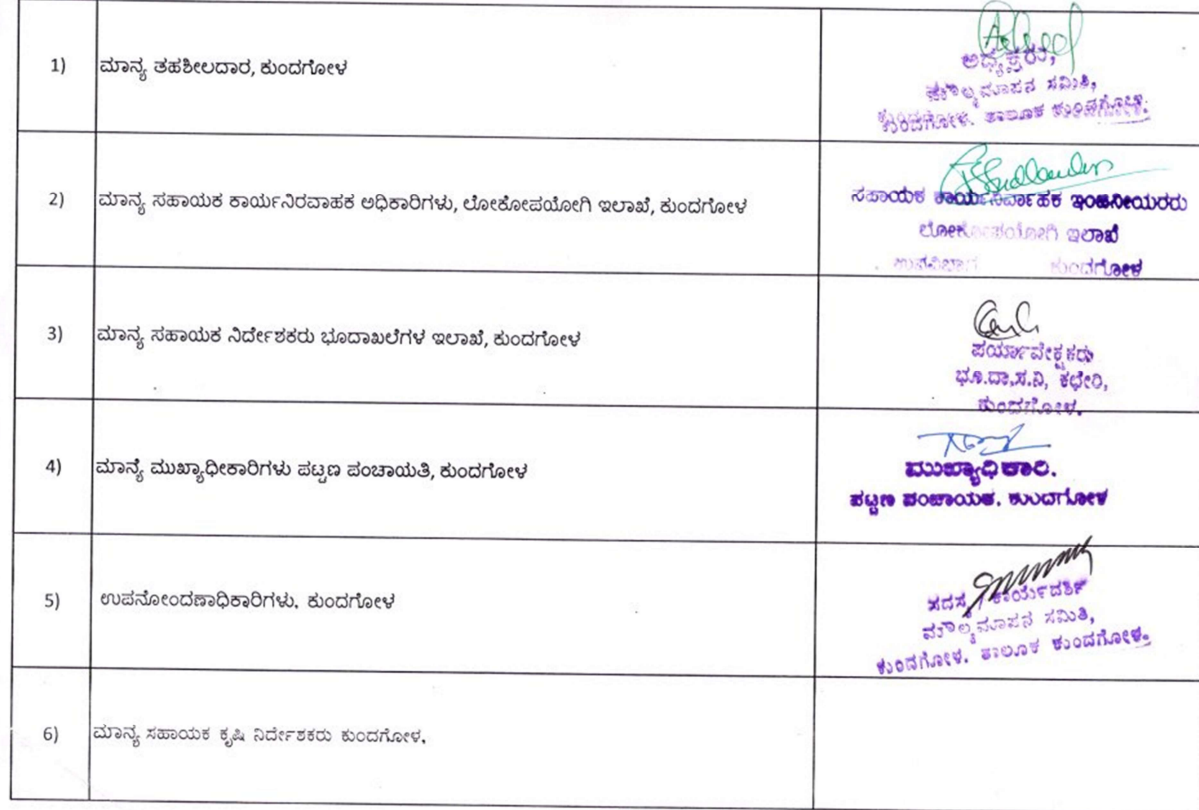 1) ಮಾನ್ಯ ತಹಶೀಲದಾರ, ಕುಂದಗೋಳ
ಅಧ್ಯಕ್ಷರು,
ಮೌಲ್ಯಮಾಪನ ಸಮಿತಿ,
ಕುಂದಗೋಳ. ತಾಲೂಕ ಕುಂದಗೋಳ.
2) ಮಾನ್ಯ ಸಹಾಯಕ ಕಾರ್ಯನಿರವಾಹಕ ಅಧಿಕಾರಿಗಳು, ಲೋಕೋಪಯೋಗಿ ಇಲಾಖೆ, ಕುಂದಗೋಳ
ಸಹಾಯಕ ಕಾರ್ಯನಿರ್ವಾಹಕ ಇಂಜನೀಯರರು
ಲೋಕೋಪಯೋಗಿ ಇಲಾಖೆ
ಉಪವಿಭಾಗ ಕುಂದಗೋಳ
3) ಮಾನ್ಯ ಸಹಾಯಕ ನಿರ್ದೇಶಕರು ಭೂದಾಖಲೆಗಳ ಇಲಾಖೆ, ಕುಂದಗೋಳ
ಪರ್ಯಾವೇಕ್ಷಕರು
ಭೂ.ದಾ,ಸ.ನಿ, ಕಛೇರಿ,
ಕುಂದಗೋಳ.
4) ಮಾನ್ಯೆ ಮುಖ್ಯಾಧೀಕಾರಿಗಳು ಪಟ್ಟಣ ಪಂಚಾಯತಿ, ಕುಂದಗೋಳ
ಮುಖ್ಯಾಧಿಕಾರಿ.
ಪಟ್ಟಣ ಪಂಚಾಯತ. ಕುಂದಗೋಳ
5) ಉಪನೋಂದಣಾಧಿಕಾರಿಗಳು, ಕುಂದಗೋಳ
ಸದಸ್ಯ ಕಾರ್ಯದರ್ಶಿ
ಮೌಲ್ಯಮಾಪನ ಸಮಿತಿ,
ಕುಂದಗೋಳ. ತಾಲೂಕ ಕುಂದಗೋಳ.
6) ಮಾನ್ಯ ಸಹಾಯಕ ಕೃಷಿ ನಿರ್ದೇಶಕರು ಕುಂದಗೋಳ.